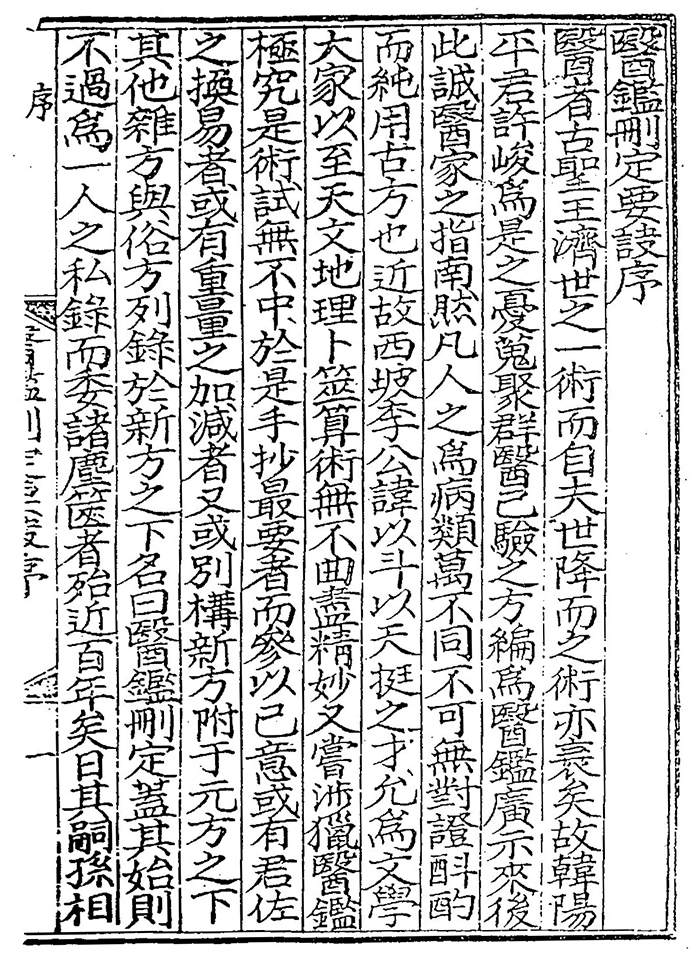 醫鑑刪定要訣序
醫者古聖王濟世之一術而自夫世降而之術亦衰矣故韓陽
平君許峻爲是之憂蒐聚群醫已驗之方編爲醫鑑廣示來後
此誠醫家之指南然凡人之爲病類萬不同不可無對證斟酌
而純用古方也近故西坡李公諱以斗以天挺之才允爲文學
大家以至天文地理卜筮算術無不曲盡精妙又嘗涉獵醫鑑
極究是術試無不中於是手抄最要者而參以己意或有君佐
之換易者或有重量之加減者又或別構新方附于元方之下
其他雜方與俗方列錄於新方之下名曰醫鑑刪定蓋其始則
不過爲一人之私錄而委諸塵篋者殆近百年矣日其嗣孫相
序
醫鑑刪定要訣序
一